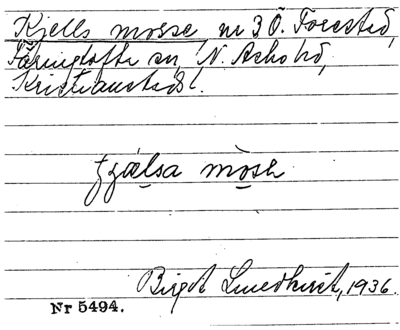 Kjells mosse, nr 3 Ö. Forestad,
Färingtofta sn, N. Åsbo hd,
Kristianstads l.
fjälsa mosh
Birgit Lundkvist, 1936.
Nr 5494.